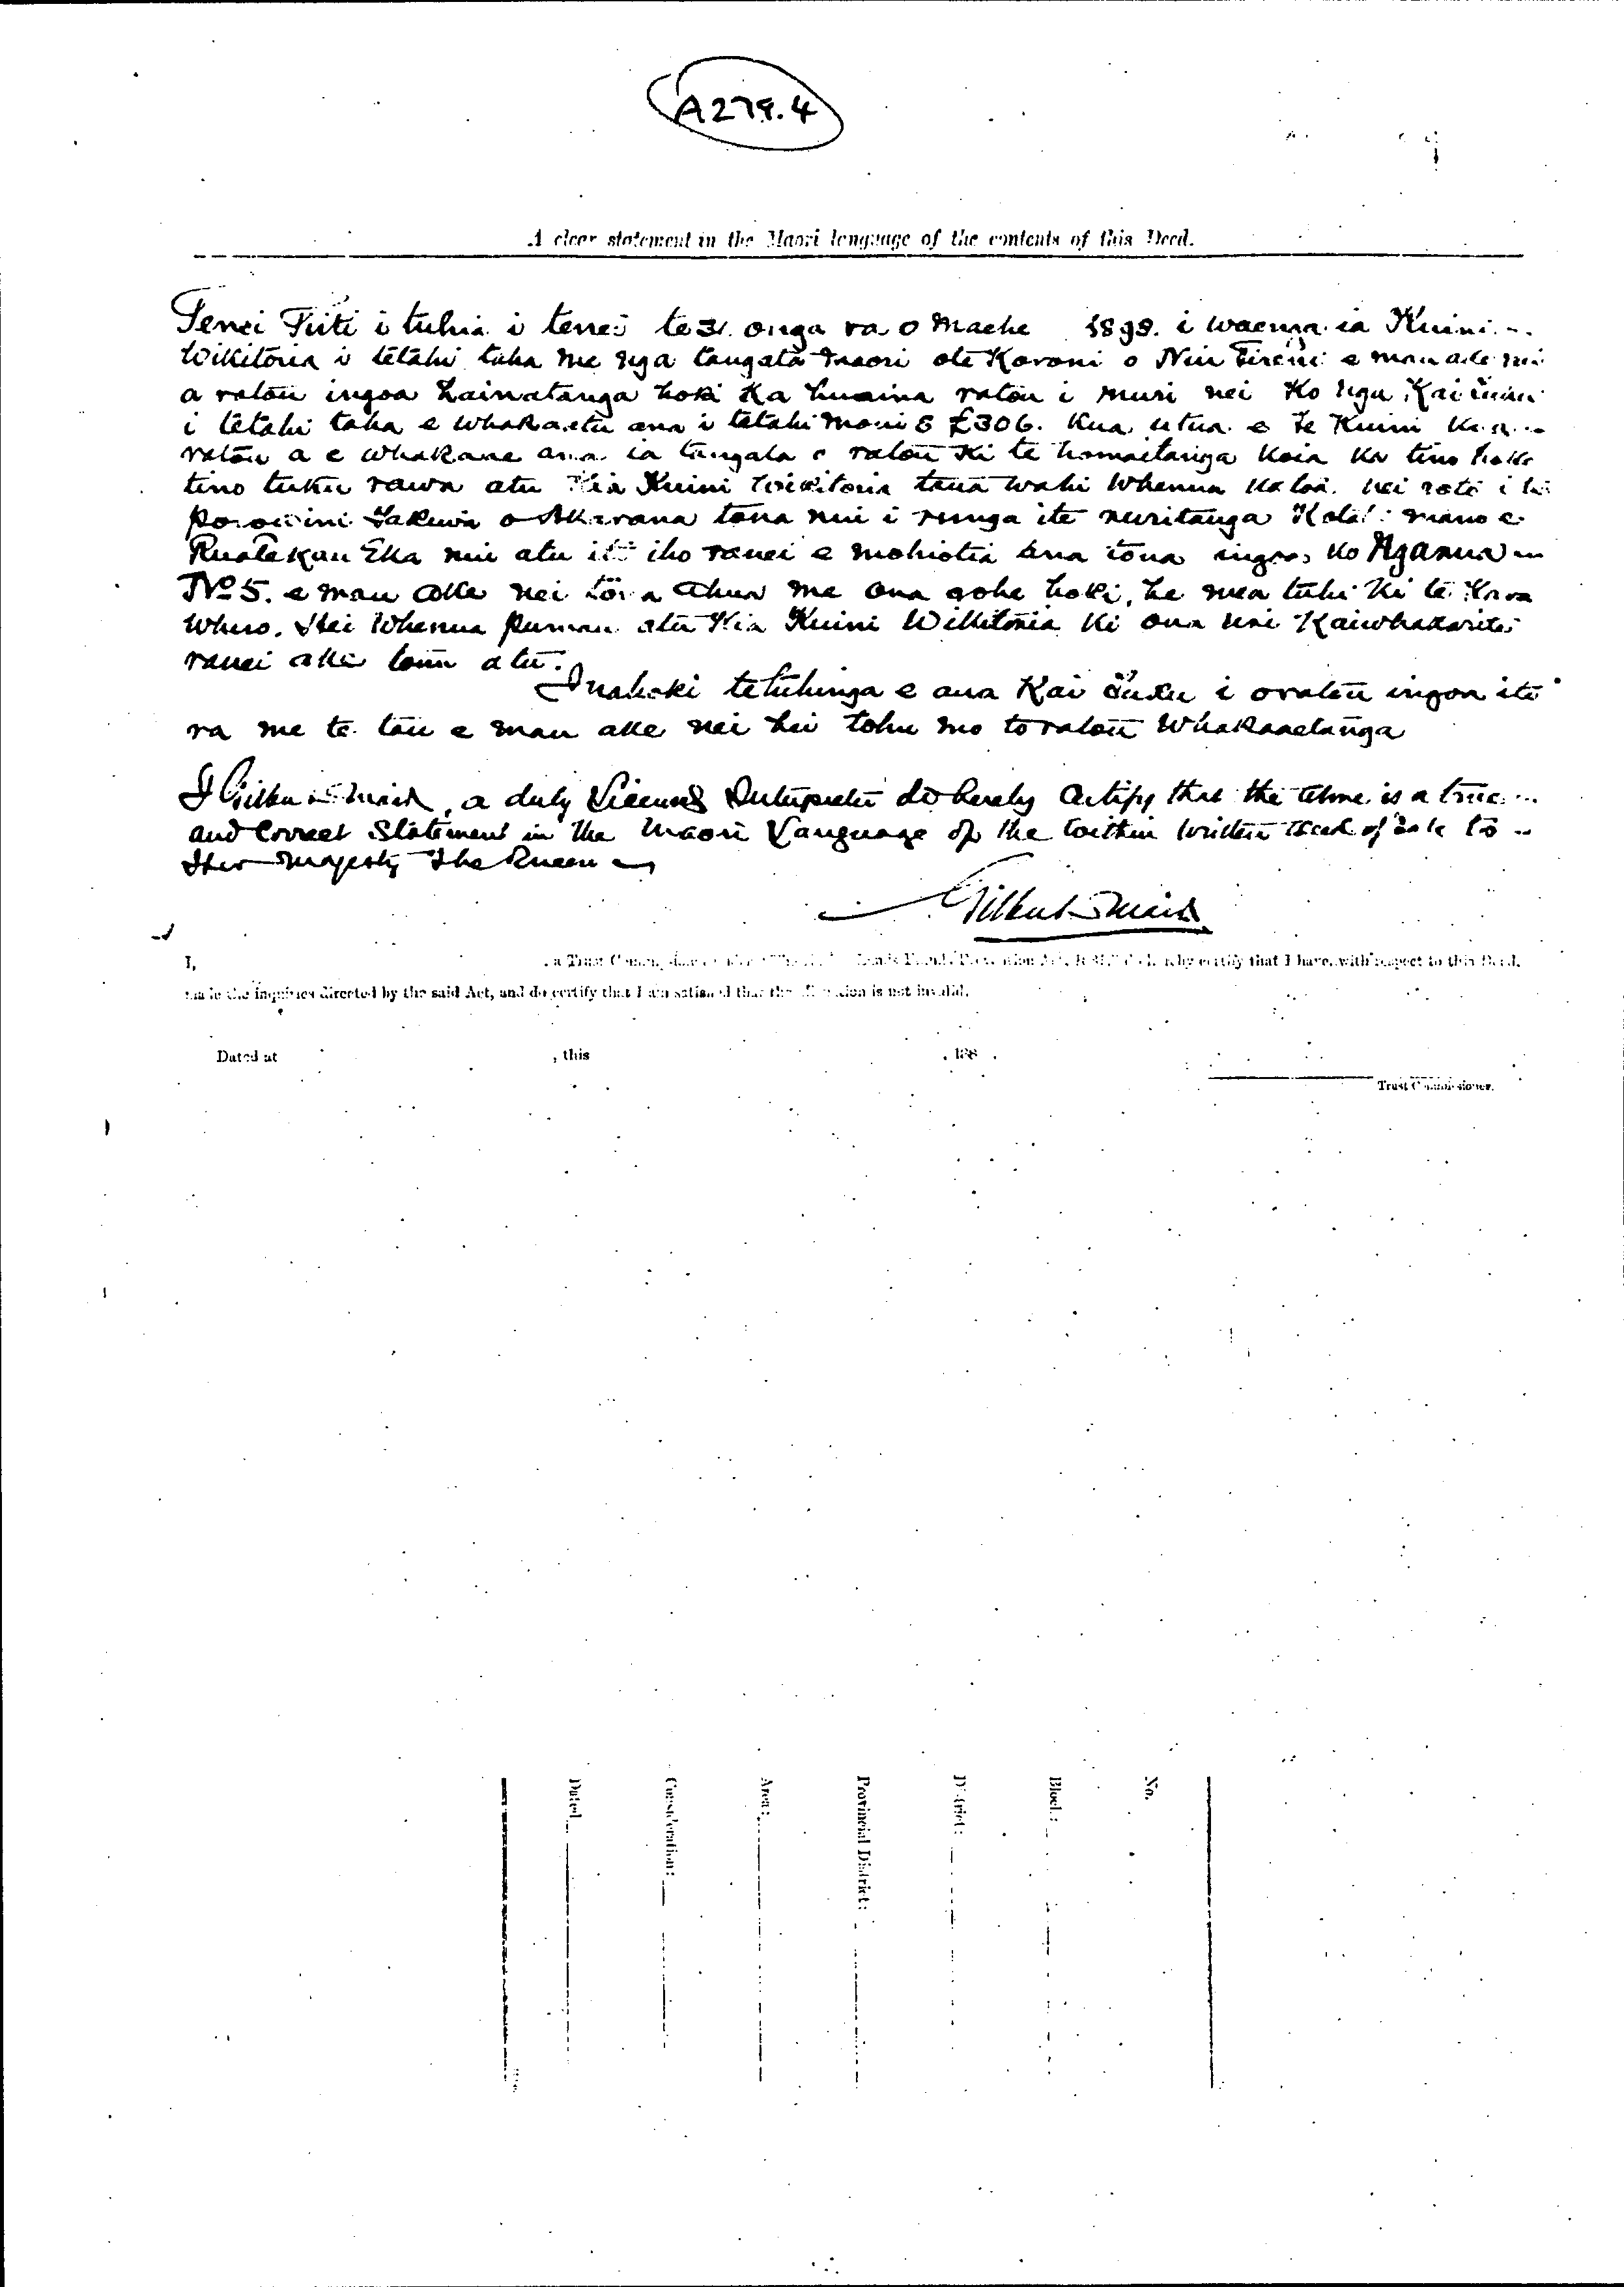 A279.4
A clear statement in the Maori language of the contents of this Deed.
Tenei Tiiti i tuhia i tenei te 31 onga ra o Maehe 1898. i waenga ia Kuini
Wikitoria i tetahi taha me nga tangata maori ote Koroni o Niu Tireni e mau ake nei
a ratou ingoa hainatanga hoki ka huaina ratou i muri nei ko nga Kai tuku
i tetahi taha e whakaatu ana i tetahi moni £306. Kua utua e te Kuini kia
ratou a e whakaae ana ia tangata o ratou ki te homaitanga koia ka tino hoko
tino tuku rawa atu kia Kuini Wikitoria taua wahi whenua katoa kei roto i te
Porowini Takiwa o Akarana tona nui i runga ite ruritanga Kotahi mano e
Ruatekau Eka nui atu iti iho ranei e mohiotia ana tona ingoa ko Nganua
No 5. e mau ake nei tona ahua me ona rohe hoki, he mea tuhi ki te Kara
whero. Hei Whenua pumau atu kia Kuini Wikitoria ki ona uri Kaiwhakarite
ranei ake tonu atu.
Inahoki te tuhinga e aua Kai tuku i oratou ingoa ite
ra me te tau e mau ake nei hei tohu mo to ratou whakaaetanga
I Gilbert Mair, a duly Licensed Interpreter do hereby Certify that the above is a true
and correct Statement in the Maori Language of the within written Deed of Sale to
Her Majesty The Queen
Gilbert Mair
I, a Trust certify that I have, with respect to this Deed,
made the inquiries directed by the said Act, and do certify that I am satisfied that the is not invalid.
Dated at , this , 188 .
Trust Commissioner.
No.
Block:
District:
Provincial District:
Area:
Consideration:
Dated